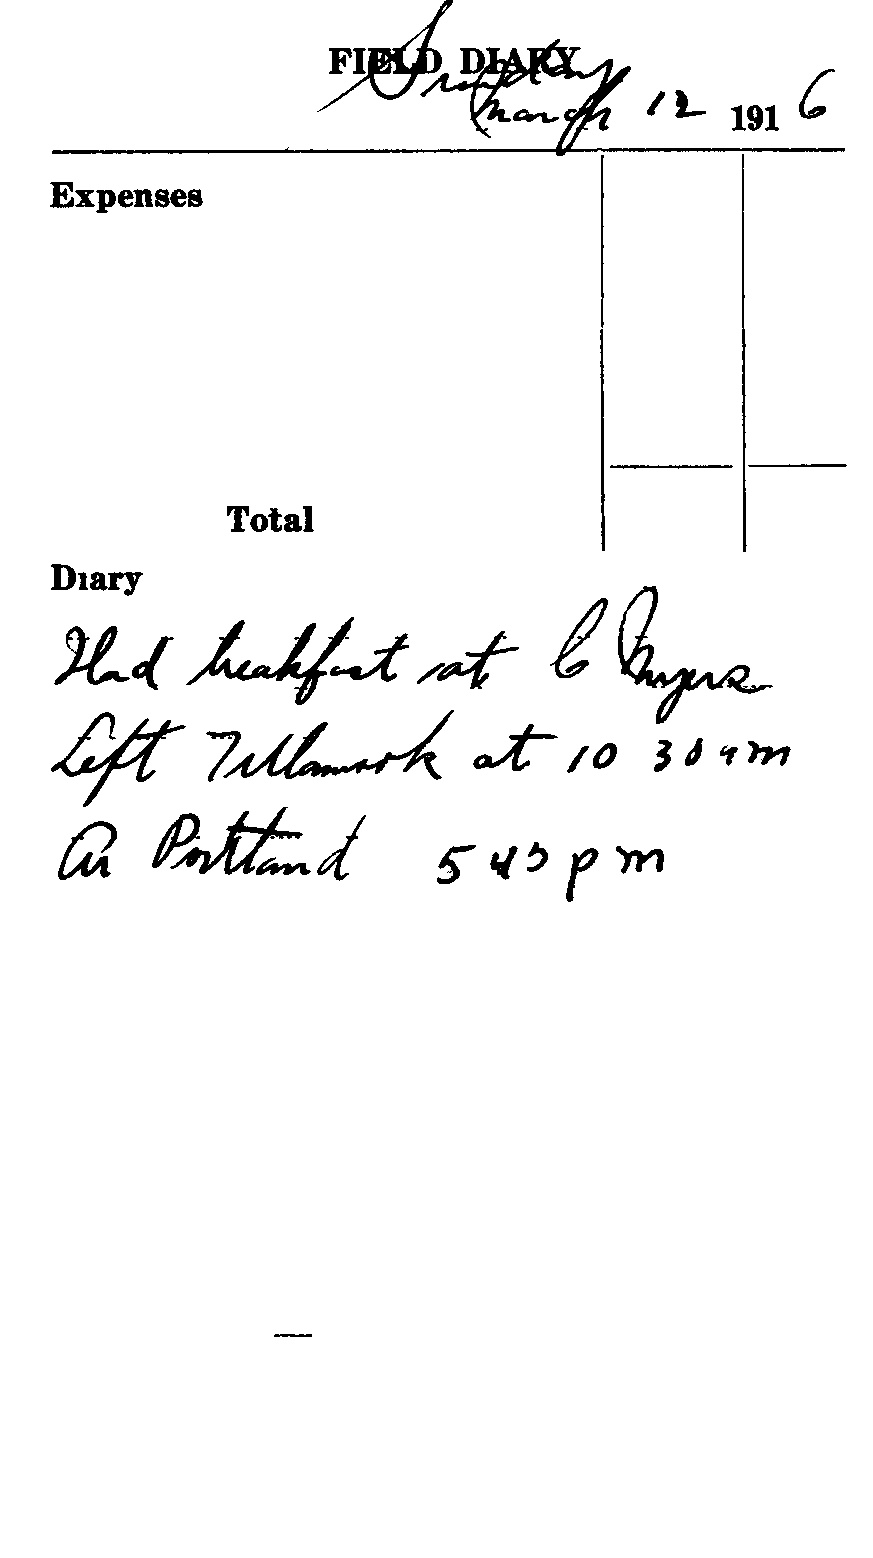 FIELD DIARY
Sunday
March 12 1916
Expenses
Total
Diary
Had breakfast at C Myers
Left Tillamook at 10 30 am
Ar Portland 5 45 pm